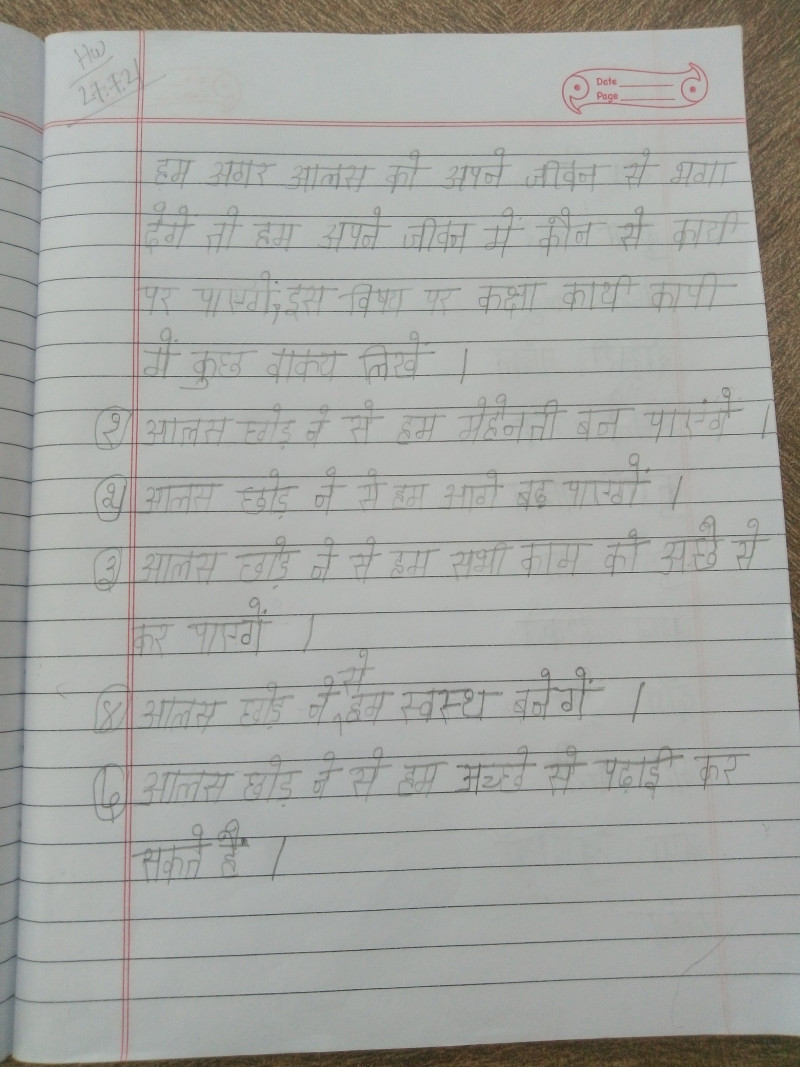 Hw
27.7.21
Date
Page
हम अगर आलस को अपने जीवन से भगा
देगें तो हम अपने जीवन में कौन से कार्य
पर पाएगें, इस विषय पर कक्षा कार्य कापी
में कुछ वाक्य लिखें ।
१ आलस छोड़ ने से हम मेहैनती बन पाएंगे ।
२ आलस छोड़ ने से हम आगे बढ़ पाएगें ।
३ आलस छोड़े ने से हम सभी काम को अच्छे से
कर पाएगें ।
४ आलस छोड़े ने से हम स्वस्थ बनेगें ।
५ आलस छोड़ ने से हम अच्छे से पढ़ाई कर
सकते है ।